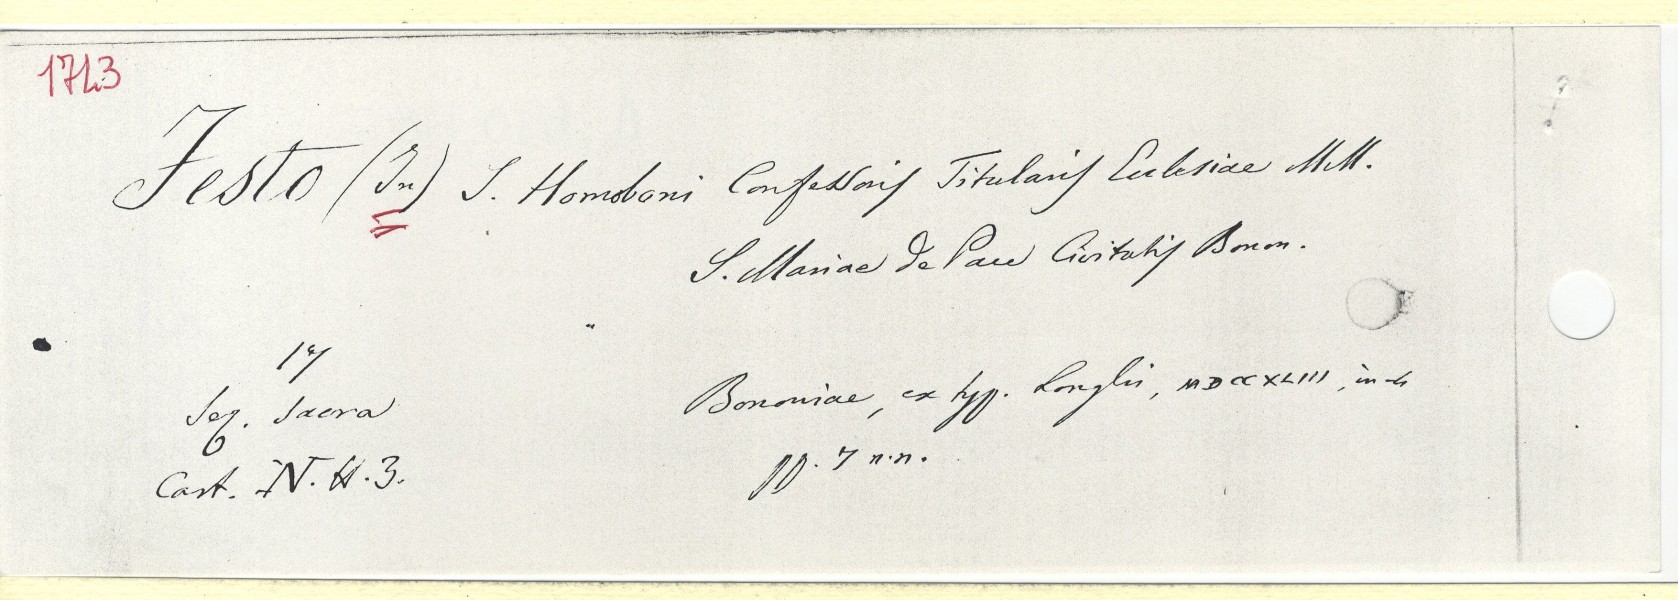 1743
Festo (In) S. Homoboni Confessoris Titularis Ecclesiae MM.
S. Mariae de Pace Civitatis Bonon.
17
Sez. Sacra
Bononiae, ex typ. Longhi, MDCCXLIII, in-4
Cart. N. H. 3.
pp. 7 n.n.